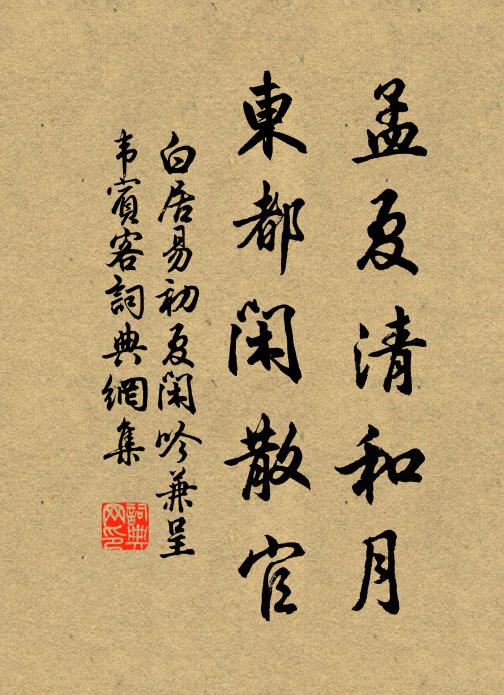 孟夏清和月
東都閑散官
白居易初夏閑吟兼呈
韦賓客詞典網集
詞典
网印